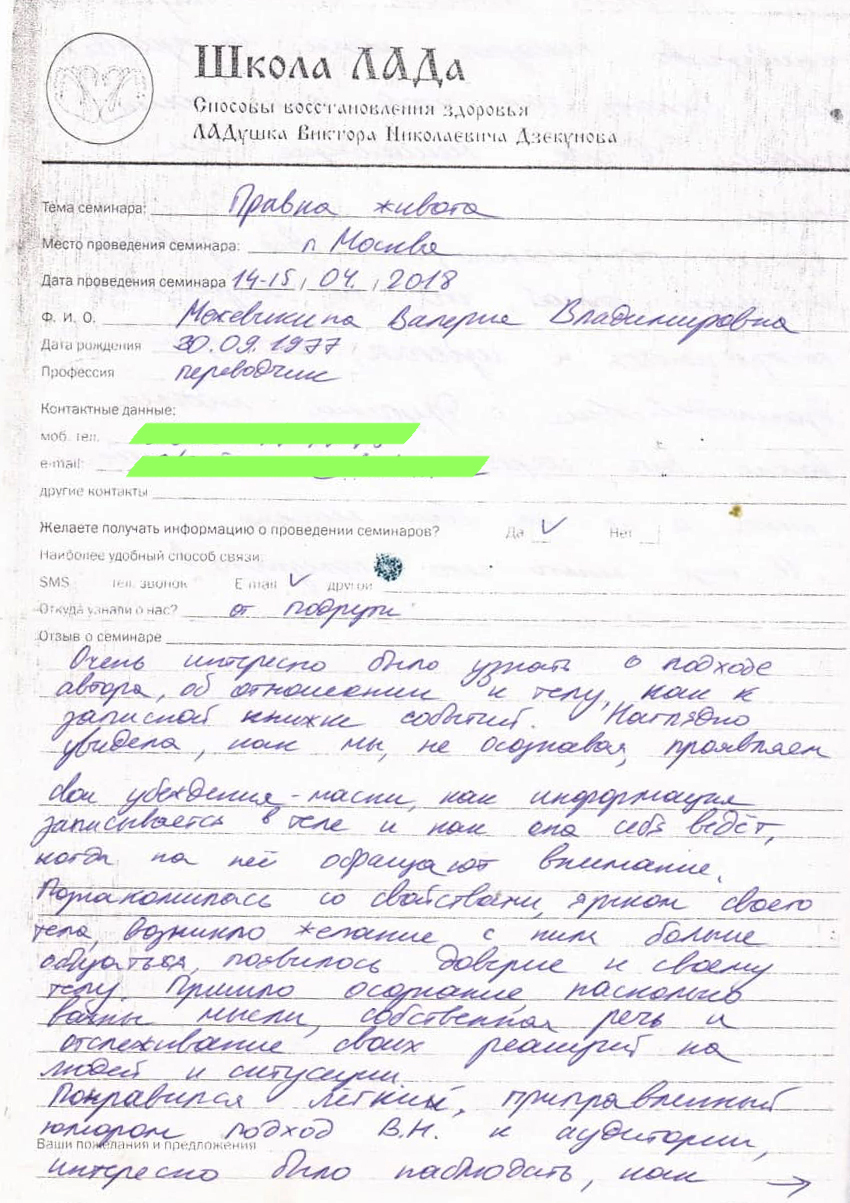 Школа ЛАДа
Способы восстановления здоровья
ЛАДушка Виктора Николаевича Дзекунова
Тема семинара: Правка живота
Место проведения семинара: г. Москва
Дата проведения семинара 14-15, 04, 2018
Ф. И. О. Валерия Владимировна
Дата рождения 30.09.1977
Профессия переводчик
Контактные данные:
моб. тел.
e-mail:
другие контакты
Желаете получать информацию о проведении семинаров? Да Нет
Наиболее удобный способ связи:
SMS тел. звонок E-mail другой
Откуда узнали о нас? от подруги
Отзыв о семинаре
Очень интересно было узнать о подходе
автора, об отношении к телу, как к
записной книжке событий. Наглядно
увидела, как мы, не осознавая, проявляем
свои убеждения-маски, как информация
записывается в теле и как она себя ведёт,
когда на неё обращают внимание.
Познакомилась со свойствами, языком своего
тела, возникло желание с ним больше
общаться, появилось доверие к своему
телу. Пришло осознание, насколько
важны мысли, собственная речь и
отслеживание своих реакций на
людей и ситуации.
Понравился легкий, приправленный
юмором подход В.Н. к аудитории,
Ваши пожелания и предложения
интересно было наблюдать, как →